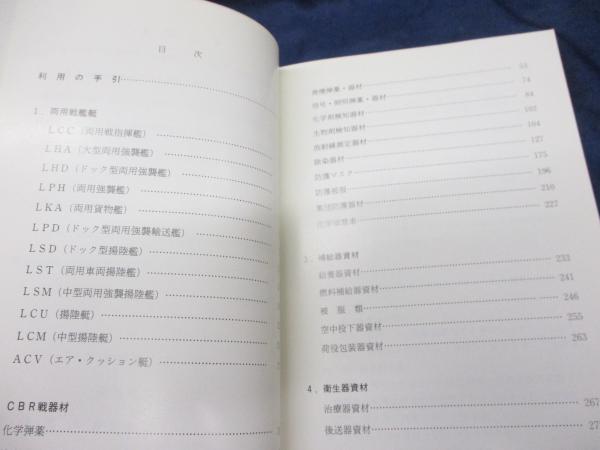 目 次
利用の手引
1. 両用戦艦艇
LCC（両用戦指揮艦）
LHA（大型両用強襲艦）
LHD（ドック型両用強襲艦）
LPH（両用強襲艦）
LKA（両用貨物艦）
LPD（ドック型両用強襲輸送艦）
LSD（ドック型揚陸艦）
LST（両用車両揚陸艦）
LSM（中型両用強襲揚陸艦）
LCU（揚陸艇）
LCM（中型揚陸艇）
ACV（エア・クッション艇）
CBR戦器材
化学弾薬
発煙弾薬・器材 53
信号・照明弾薬・器材 74
化学剤検知器材 84
生物剤検知器材 102
放射線測定器材 104
除染器材 127
防護マスク 175
防護被服 196
集団防護器材 210
227
3. 補給器資材
給養器資材 233
燃料補給器資材 241
被服類 246
空中投下器資材 255
荷役包装器資材 263
4. 衛生器資材
治療器資材 267
後送器資材